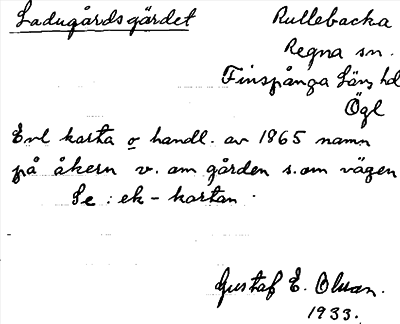 Ladugårdsgärdet
Rullebacka
Regna sn.
Finspånga läns hd
Ögl
Enl karta o handl. av 1865 namn
på åkern v. om gården s. om vägen
Se : ek - kartan .
Gustaf E. Olsson.
1933.